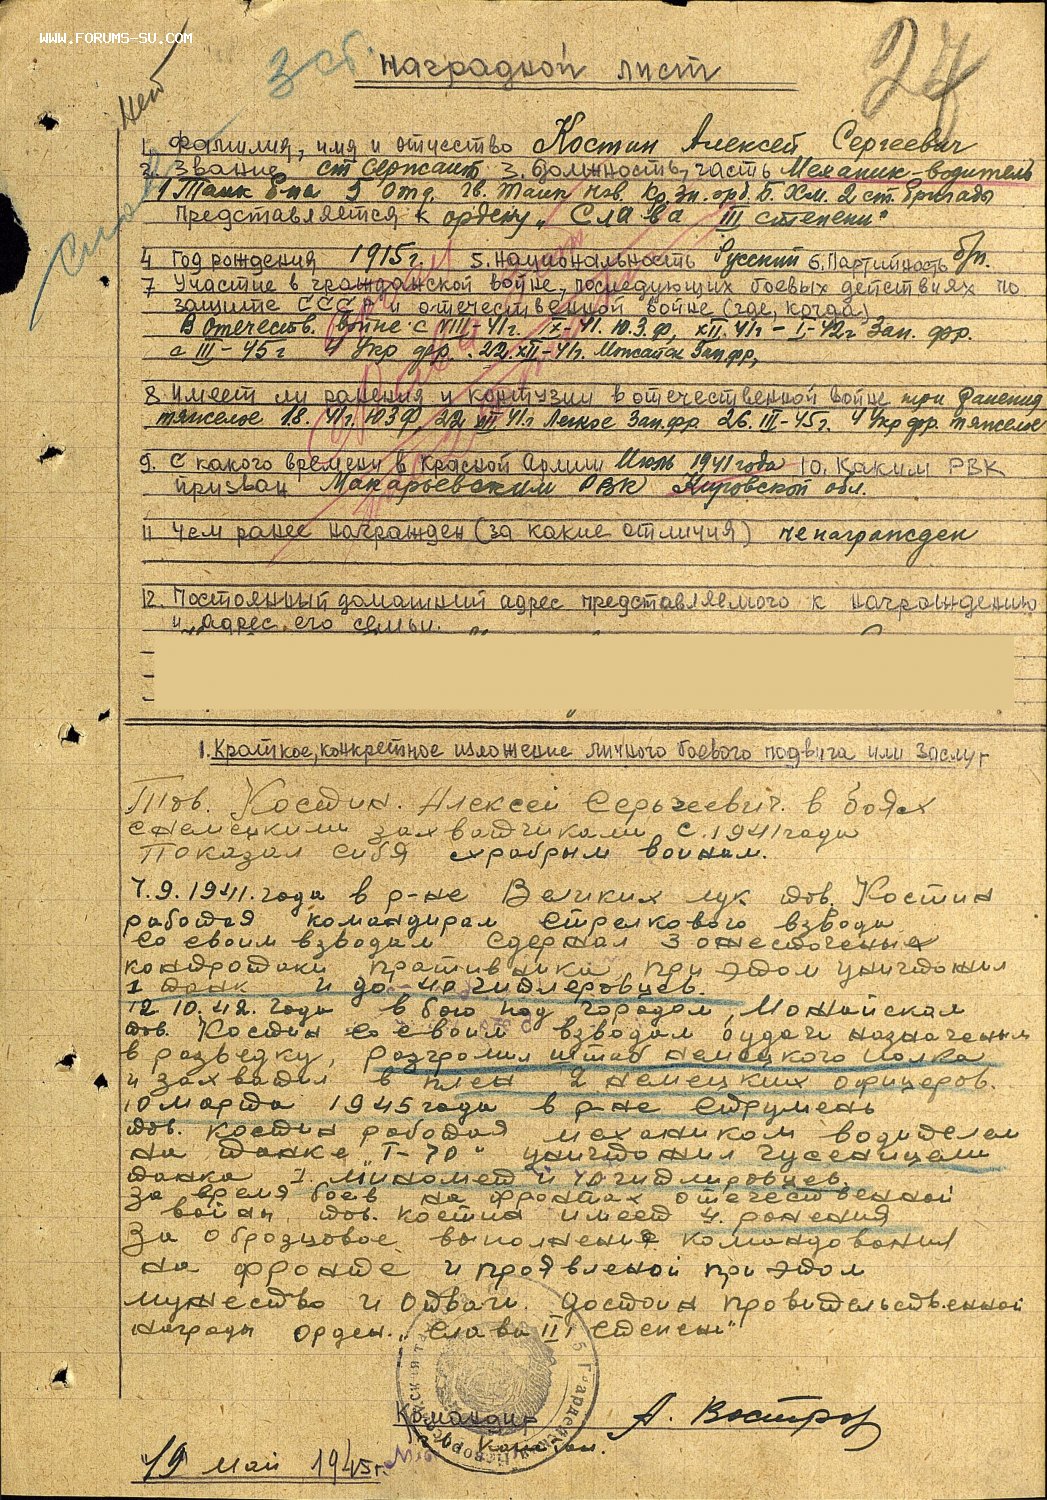 WWW.FORUMS-SU.COM
27
Наградной лист
1. Фамилия, имя и отчество Костин Алексей Сергеевич
2. Звание ст сержант 3. Должность, часть Механик-водитель
1 Танк б-на 5 Отд. Гв. Танк Нов. Кр. Зн. орд. Б. Хм. 2 ст. бригады
Представляется к ордену „Слава III степени"
4 Год рождения 1915 г. 5. Национальность Русский 6. Партийность б/п.
7 Участие в гражданской войне, последующих боевых действиях по
защите СССР и отечественной войне (где, когда)
В Отечеств. войне с VIII-41г. IX-41. Ю.З.ф, XII.41г - I-42г Зап. фр.
с III-45г 4 Укр фр. 22.XII-41г. Можайск Зап. фр,
8. Имеет ли ранения и контузии в отечественной войне три ранения
тяжелое 18. 41г. Ю.З.Ф. 22 XII 41г Легкое Зап. фр. 26. III-45г. 4 Укр фр. тяжелое
9. С какого времени в Красной Армии Июль 1941 года 10. Каким РВК
призван Макарьевским РВК Кировской обл.
11 Чем ранее награжден (за какие отличия) не награжден
12. Постоянный домашний адрес представляемого к награждению
и адрес его семьи.
1. Краткое, конкретное изложение личного боевого подвига или заслуг
Тов. Костин. Алексей Сергеевич. в боях
с немецкими захватчиками с. 1941 года
Показал себя храбрым воинам.
7.9.1941. года в р-не Великих лук тов. Костин
работая командирам стрелкового взвода
со своим взводам сдержал 3 ожесточеных
контротаки противника при этом уничтожил
1 танк и до-40 гитлеровцев.
12 10. 42. года в бою под городом, Можайскам
тов. Костин со своим взводам будачи назначеным
в разведку, разгромил штаб немецкого полка
и захватил в плен 2 немецких офицеров.
10 марта 1945 года в р-не Струмень
тов. Костин работая механиком водителем
на танке „Т-70" уничтожил гусеницами
танка 1 миномет и 40 гитлировцев.
За время боев на фронтах отечественной
войны тов. Костин имеет 4. ронения
За оброзцовое выполнение командования
на фронте и проявленой при этом
мужество и отваги. достоин провительственной
награды орден. „Слава III степени"
Командир
А. Востров
19 май 1945г.